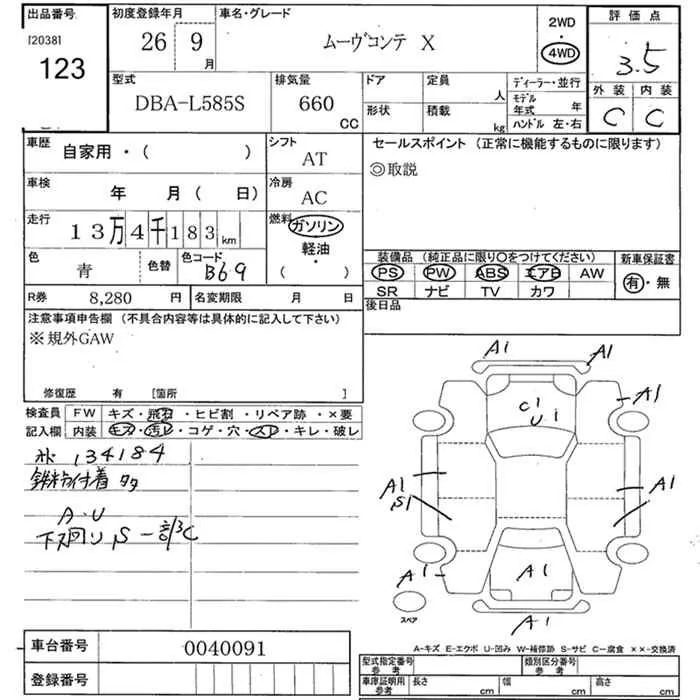 出品番号
120381
123
初度登録年月
26 9
月
車名・グレード
ムーヴコンテ X
2WD
・
4WD
評価点
3.5
外装 内装
C C
型式
DBA-L585S
排気量
660
CC
ドア
形状
定員
人
積載
kg
ディーラー・並行
モデル年式 年
ハンドル 左・右
車歴
自家用・( )
シフト
AT
セールスポイント (正常に機能するものに限ります)
◎取説
車検
年 月( 日)
冷房
AC
走行
13万4千183km
燃料
ガソリン
軽油
・
( )
色
青
色替
色コード
B69
装備品 (純正品に限り○をつけてください)
PS PW ABS エアB AW
SR ナビ TV カワ
新車保証書
有・無
R券 8,280 円
名変期限 月 日
後日品
注意事項申告欄 (不具合内容等は具体的に記入して下さい)
※規外GAW
修復歴 有 [箇所 ]
検査員
記入欄
FW キズ・飛石・ヒビ割・リペア跡・×要
内装 キズ・汚レ・コゲ・穴・スレ・キレ・破レ
134184
鉄粉付着 多
A・U
下回り S 一部C
A1 A1
C1
U1
A1
A1
S1
A1
A1
A1
A1
スペア
A-キズ E-エクボ U-凹み W-補修跡 S-サビ C-腐食 ××-交換済
車台番号 0040091
登録番号
型式指定番号
参考
類別区分番号
参考
車庫証明用
参考
長さ cm
幅 cm
高さ cm